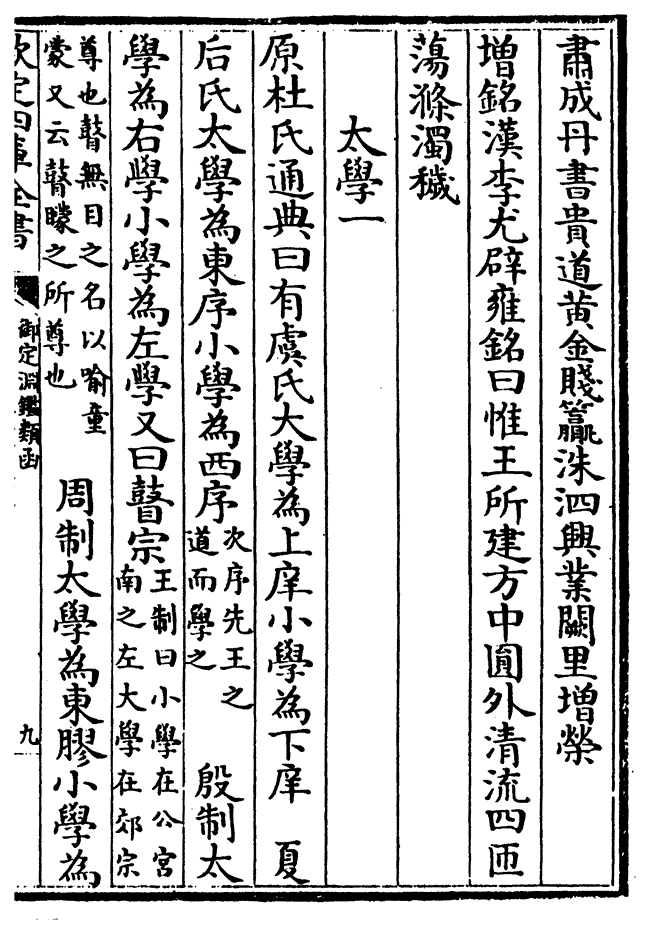 肅成丹書貴道黄金賤籯洙泗興業闕里增榮
增銘漢李尤辟雍銘曰惟王所建方中圓外清流四匝
蕩滌濁穢
太學一
原杜氏通典曰有虞氏大學為上庠小學為下庠　夏
后氏太學為東序小學為西序次序先王之道而學之　殷制太
學為右學小學為左學又曰瞽宗王制曰小學在公宮南之左大學在郊宗
尊也瞽無目之名以喻童蒙又云瞽矇之所尊也　周制太學為東膠小學為
欽定四庫全書　御定淵鑑類函　九